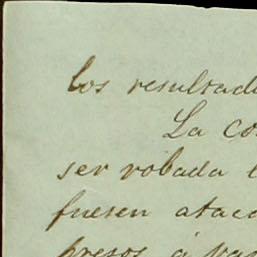 los resultad
La co
ser robada
fuesen atac
presos á